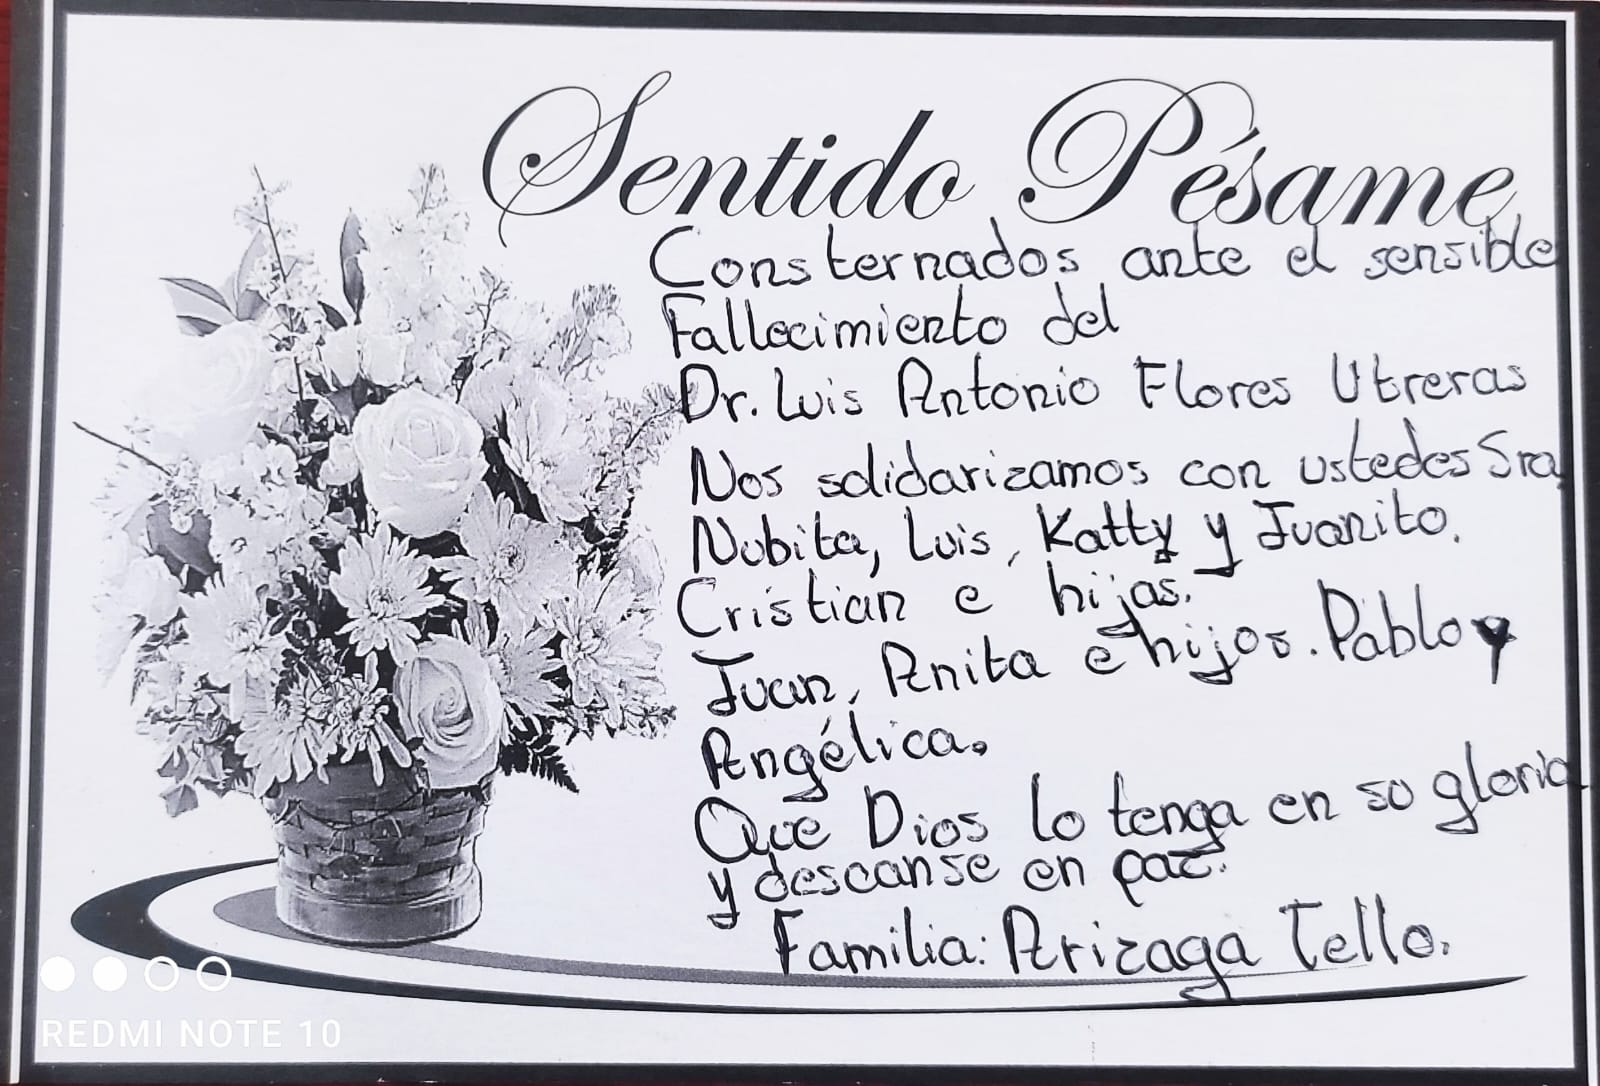 Sentido Pésame
Consternados ante el sensible
Fallecimiento del
Dr. Luis Antonio Flores Utreras
Nos solidarizamos con ustedes Sra
Nubita, Luis, Katty y Juanito.
Cristian e hijas.
Juan, Anita e hijos. Pablo y
Angélica.
Que Dios lo tenga en su gloria
y descanse en paz.
Familia: Arizaga Tello.
REDMI NOTE 10